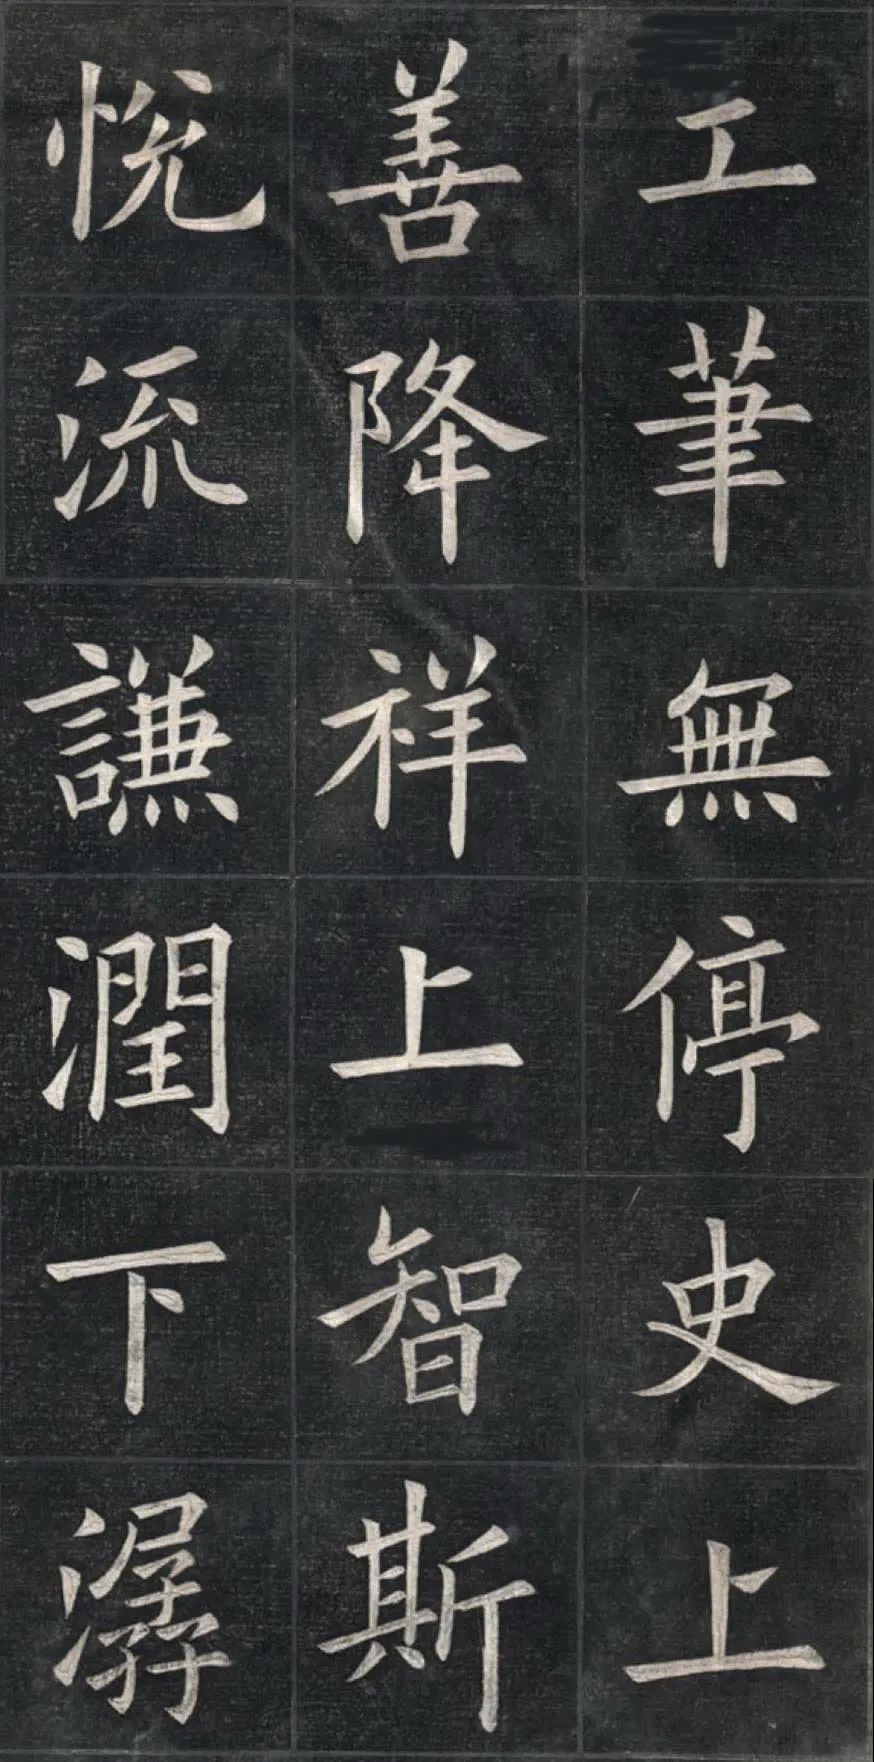 工筆無停史上
善降祥上智斯
悅流謙潤下潺